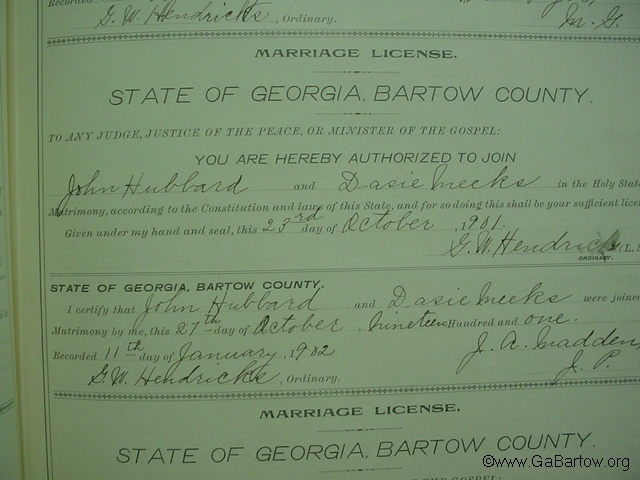 Recorded
G. W. Hendricks, Ordinary. M. G.
MARRIAGE LICENSE.
STATE OF GEORGIA, BARTOW COUNTY.
TO ANY JUDGE, JUSTICE OF THE PEACE, OR MINISTER OF THE GOSPEL:
YOU ARE HEREBY AUTHORIZED TO JOIN
John Hubbard and Dasie Meeks in the Holy State
Matrimony, according to the Constitution and laws of this State, and for so doing this shall be your sufficient licen
Given under my hand and seal, this 23rd day of October, 1901.
G. W. Hendricks (L. S
ORDINARY.
STATE OF GEORGIA, BARTOW COUNTY.
I certify that John Hubbard and Dasie Meeks were joined
Matrimony by me, this 27th day of October, Nineteen Hundred and one.
Recorded 11th day of January, 1902 J. A. Madden,
G. W. Hendricks, Ordinary. J. P.
MARRIAGE LICENSE.
STATE OF GEORGIA, BARTOW COUNTY.
THE GOSPEL:
©www.GaBartow.org